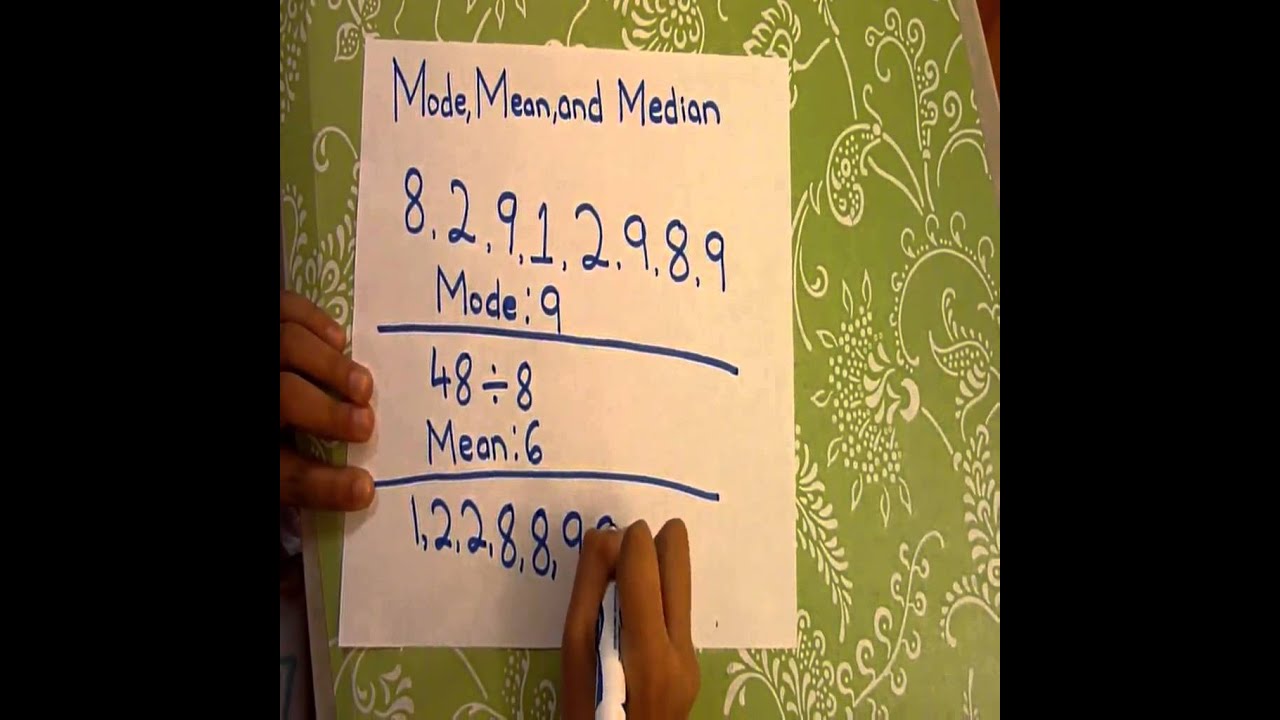 Mode, Mean, and Median
8, 2, 9, 1, 2, 9, 8, 9
Mode: 9
48÷8
Mean: 6
1, 2, 2, 8, 8, 9